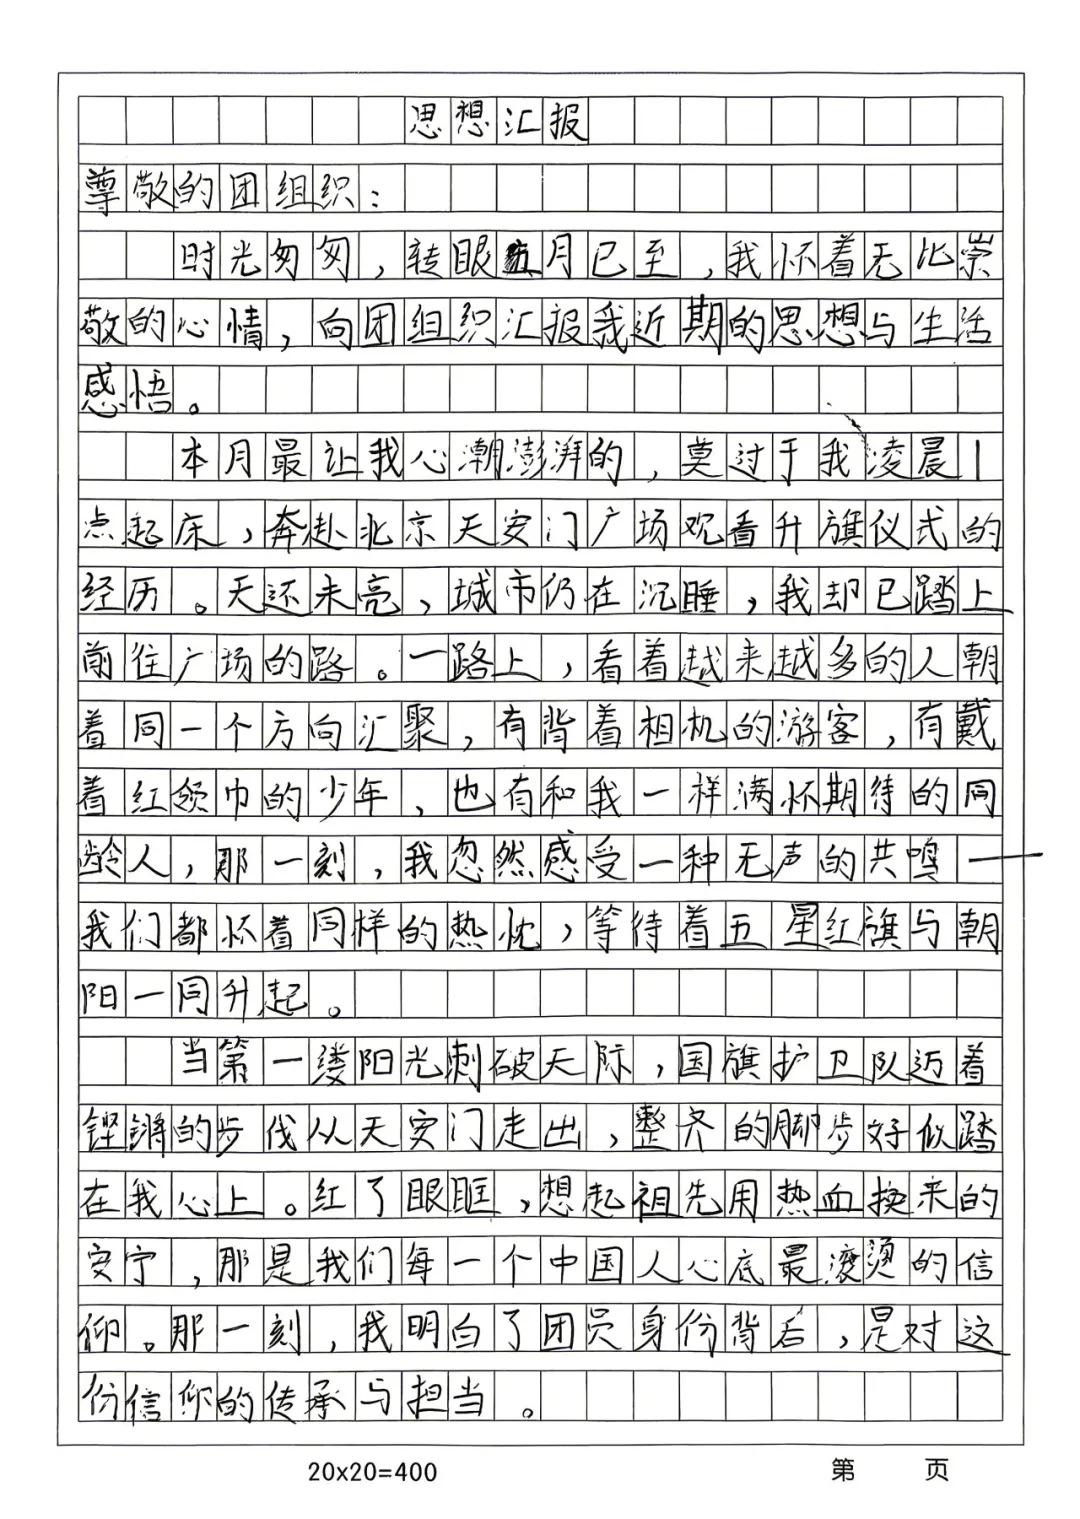 思想汇报
尊敬的团组织：
时光匆匆，转眼五月已至，我怀着无比崇
敬的心情，向团组织汇报我近期的思想与生活
感悟。
本月最让我心潮澎湃的，莫过于我凌晨1
点起床，奔赴北京天安门广场观看升旗仪式的
经历。天还未亮，城市仍在沉睡，我却已踏上
前往广场的路。一路上，看着越来越多的人朝
着同一个方向汇聚，有背着相机的游客，有戴
着红领巾的少年，也有和我一样满怀期待的同
龄人，那一刻，我忽然感受一种无声的共鸣——
我们都怀着同样的热忱，等待着五星红旗与朝
阳一同升起。
当第一缕阳光刺破天际，国旗护卫队迈着
铿锵的步伐从天安门走出，整齐的脚步好似踏
在我心上。红了眼眶，想起祖先用热血换来的
安宁，那是我们每一个中国人心底最滚烫的信
仰。那一刻，我明白了团员身份背后，是对这
份信仰的传承与担当。
20x20=400
第 页